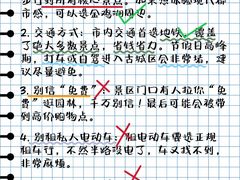 步行到所有核心景点。如果想体验现代都
市感，可以选金鸡湖周边。
2. 交通方式：市内交通首选地铁，覆盖
了绝大多数景点，省钱省力。节假日高峰
期，打车或自驾进入古城区会非常堵，建
议尽量避免。
3. 别信“免费”，景区门口有人拉你“免
费”逛园林，千万别信！最后可能会被带
到高价购物点。
4. 别租私人电动车：租电动车要选正规
租车行，不然半路没电了，车又找不到，
非常麻烦。